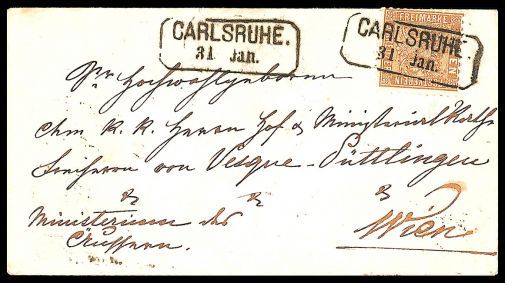 CARLSRUHE.
31 Jan.
FREIMARKE
CARLSRUHE.
31 Jan.
Sr Hochwohlgeboren
dem K. K. Herrn Hof & Ministerial Rathe
Freiherrn von Vesque-Püttlingen
& & &
Ministerium des
Äussern.
Wien